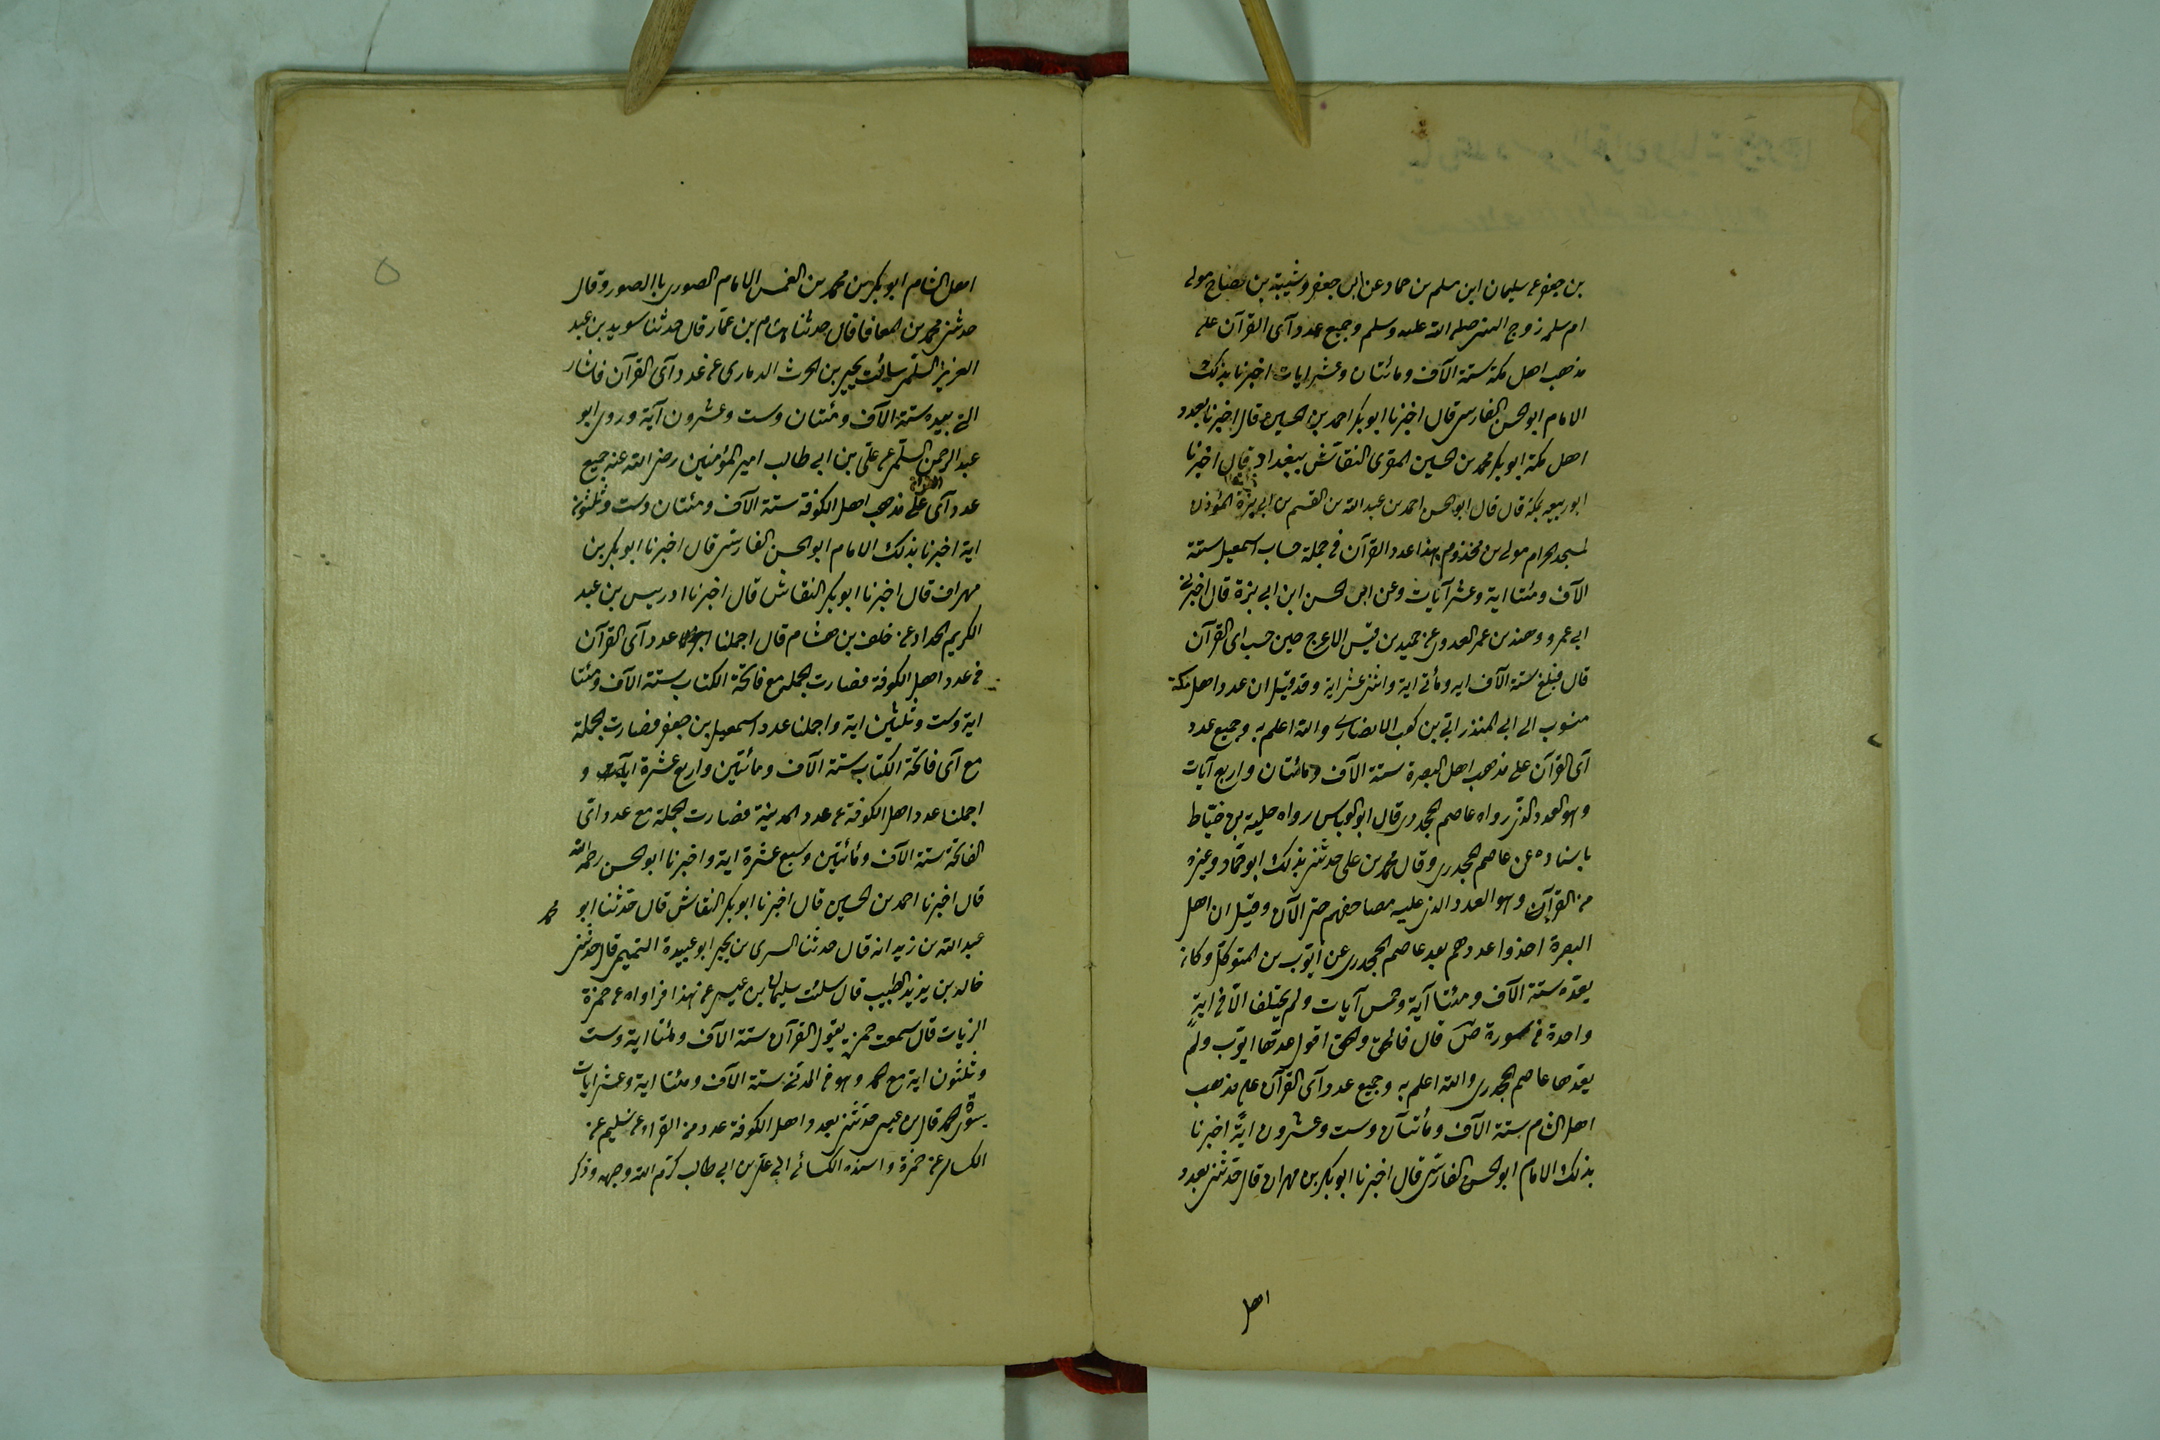 بن جعفر عن سليمان ابن مسلم بن حماد عن ابى جعفر وشيبة بن نصاح مولى
ام سلمه زوج النبى صلى الله عليه وسلم وجميع عدد آى القرآن على
مذهب اهل مكة ستة الآف ومائتان وعشر ايات اخبرنا بذلك
الامام ابو الحسن الفارسى قال اخبرنا ابو بكر احمد بن الحسين قال اخبرنا بعدد
اهل مكة ابو بكر محمد بن الحسين المقرى النقاش ببغداد قال اخبرنا
ابو ربيعه بمكة قال قال ابو الحسن احمد بن عبد الله بن القسم بن ابى بزة المؤذن
لمسجد الحرام مولى بن مخذوم بهذا عدد القرآن فى جملة حساب اسمعيل ستة
الآف ومئتا اية وعشر آيات وعن ابى الحسن ابن ابى بزة قال اخبرنى
ابى عمرو وهند بن عمر العدوى عن حميد بن قيس الاعرج حين حسب اى القرآن
قال فبلغ ستة الآف ايه ومأتى اية واثنى عشر اية وقد قيل ان عدد اهل مكة
منسوب الى ابى المنذر ابى بن كعب الانصارى والله اعلم به وجميع عدد
آى القرآن على مذهب اهل البصرة ستة الآف ومائتان واربع آيات
وهو العدد الذى رواه عاصم الجحدرى قال ابو العباس رواه حليه بن خياط
باسناده عن عاصم الجحدرى وقال محمد بن على حدثنى بذلك ابو حماد وغيره
من القرآن وهو العدد الذى عليه مصاحفهم حتى الآن وقيل ان اهل
البصرة اخذوا عددهم بعد عاصم الجحدرى عن ايوب بن المتوكل وكان
يعده ستة الآف ومئتا آية وخمس آيات ولم يختلف الا فى اية
واحدة فى سورة ص قال فالحق والحق اقول عدها ايوب ولم
يعدها عاصم الجحدرى والله اعلم به وجميع عدد آى القرآن على مذهب
اهل الشام ستة الآف ومائتان وست وعشرون اية اخبرنا
بذلك الامام ابو الحسن الفارسى قال اخبرنا ابو بكر بن مهران قال حدثنى بعدد
اهل
اهل الشام ابو بكر بن محمد بن الامام الصورى بالصور وقال
حدثنى محمد بن المعافا قال حدثنا هشام بن عمار قال حدثنا سويد بن عبد
العزيز السلمى سائت يحيى بن الحرث الدمارى عن عدد آى القرآن فاشار
الى بيده ستة الآف ومئتان وست وعشرون آية وروى ابو
عبد الرحمن السلمى عن على بن ابى طالب امير المؤمنين رضى الله عنه جميع
عدد آى القرآن على مذهب اهل الكوفة ستة الآف ومئتان وست وثلثون
اية اخبرنا بذلك الامام ابو الحسن الفارسى قال اخبرنا ابو بكر بن
مهران قال اخبرنا ابو بكر النقاش قال اخبرنا ادريس بن عبد
الكريم الحداد عن خلف بن هشام قال اجملنا عدد آى القرآن
فى عدد اهل الكوفة فصارت الجملة مع فاتحة الكتاب ستة الآف ومئتا
اية وست وثلثين اية واجملنا عدد اسمعيل بن جعفر فصارت الجملة
مع آى فاتحة الكتاب ستة الآف ومائتين واربع عشرة ايات و
اجملنا عدد اهل الكوفة عن عدد المدينة فصارت الجملة مع عدد آى
الفاتحة ستة الآف ومائتين وسبع عشرة اية واخبرنا ابو الحسن رحمه الله
قال اخبرنا احمد بن الحسين قال اخبرنا ابو بكر النقاش قال حدثنا ابو محمد
عبد الله بن زيد انه قال حدثنا السرى بن يحيى ابو عبيدة التميمى قال حدثنى
خالد بن يزيد الطبيب قال سئلت سليمان بن عيسى عن هذا فرواه عن حمزة
الزيات قال سمعت حمزة يقول القرآن ستة الآف ومئتا اية وست
وثلثون اية مع الحمد وهو فى المدنى ستة الآف ومئتا اية وعشر ايات
سوى الحمد قال بن عيسى حدثنى بعدد اهل الكوفة عدد من القراء عن سليم عن
الكسائى عن حمزة واسنده الكسائى الى على بن ابى طالب كرم الله وجهه وذكر